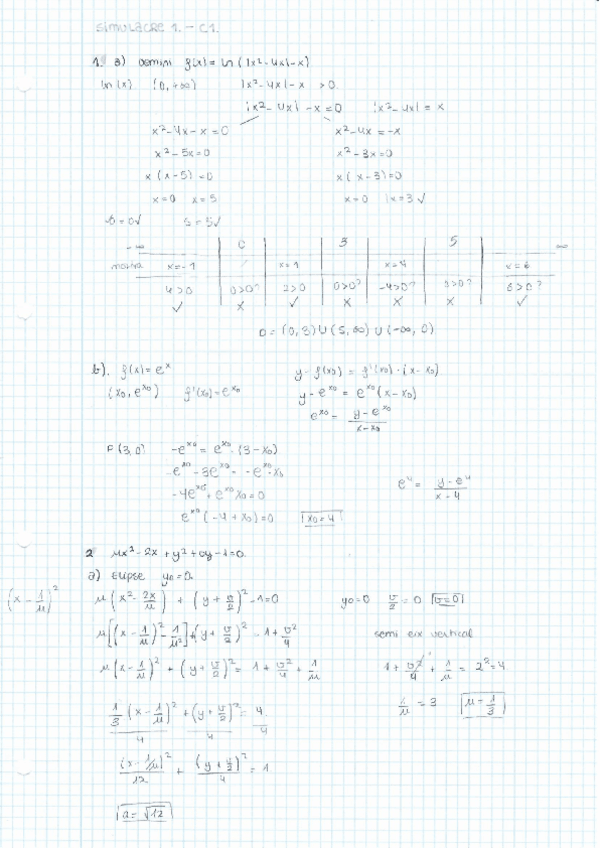 SIMULACRE 1. - C1.
1. a) Domini f(x) = ln (|x²-4x|-x)
ln(x) (0, +∞) |x²-4x|-x > 0
|x²-4x| - x = 0 |x²-4x| = x
x²-4x-x=0 x²-4x=-x
x²-5x=0 x²-3x=0
x(x-5)=0 x(x-3)=0
x=0 x=5 x=0 x=3 ✓
0=0✓ 5=5✓
-∞ 0 3 5 ∞
mostra x=-1 x=1 x=4 x=6
4>0 0>0? 2>0 0>0? -4>0? 0>0? 6>0?
✓ X ✓ X X X ✓
D = (0,3) ∪ (5,∞) ∪ (-∞, 0)
b). f(x) = eˣ y - f(x₀) = f'(x₀) · (x-x₀)
(x₀, e^x₀) f'(x₀) = e^x₀ y - e^x₀ = e^x₀ (x-x₀)
e^x₀ = (y-e^x₀)/(x-x₀)
P(3,0) -e^x₀ = e^x₀ · (3-x₀)
-e^x₀ - 3e^x₀ = -e^x₀ · x₀
-4e^x₀ + e^x₀ x₀ = 0 e⁴ = (y-e⁴)/(x-4)
e^x₀ (-4+x₀) = 0 x₀=4
2 μx² - 2x + y² + vy - 1 = 0
a) Elipse y₀=0
(x - 1/μ)² μ(x² - 2x/μ) + (y + v/2)² - 1 = 0 y₀=0 v/2 = 0 v=0
μ[(x - 1/μ)² - 1/μ²] + (y + v/2)² = 1 + v²/4 semi eix vertical
μ(x - 1/μ)² + (y + v/2)² = 1 + v²/4 + 1/μ 1 + v²/4 + 1/μ = 2² = 4
1/μ = 3 μ = 1/3
1/3 (x - 1/μ)²/4 + (y + v/2)²/4 = 4/4
(x - 1/μ)²/12 + (y + v/2)²/4 = 1
a = √12